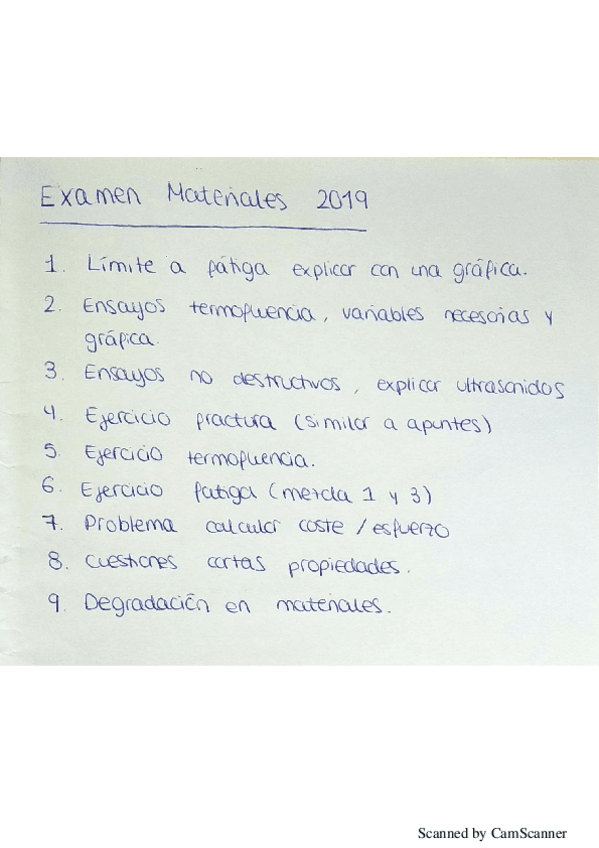 Examen Materiales 2019
1. Límite a fátiga explicar con una gráfica.
2. Ensayos termofluencia, variables necesarias y
gráfica.
3. Ensayos no destructivos, explicar ultrasonidos
4. Ejercicio fractura (similar a apuntes)
5. Ejercicio termofluencia.
6. Ejercicio fatiga (mezcla 1 y 3)
7. Problema calcular coste / esfuerzo
8. Cuestiones cartas propiedades.
9. Degradación en materiales.
Scanned by CamScanner